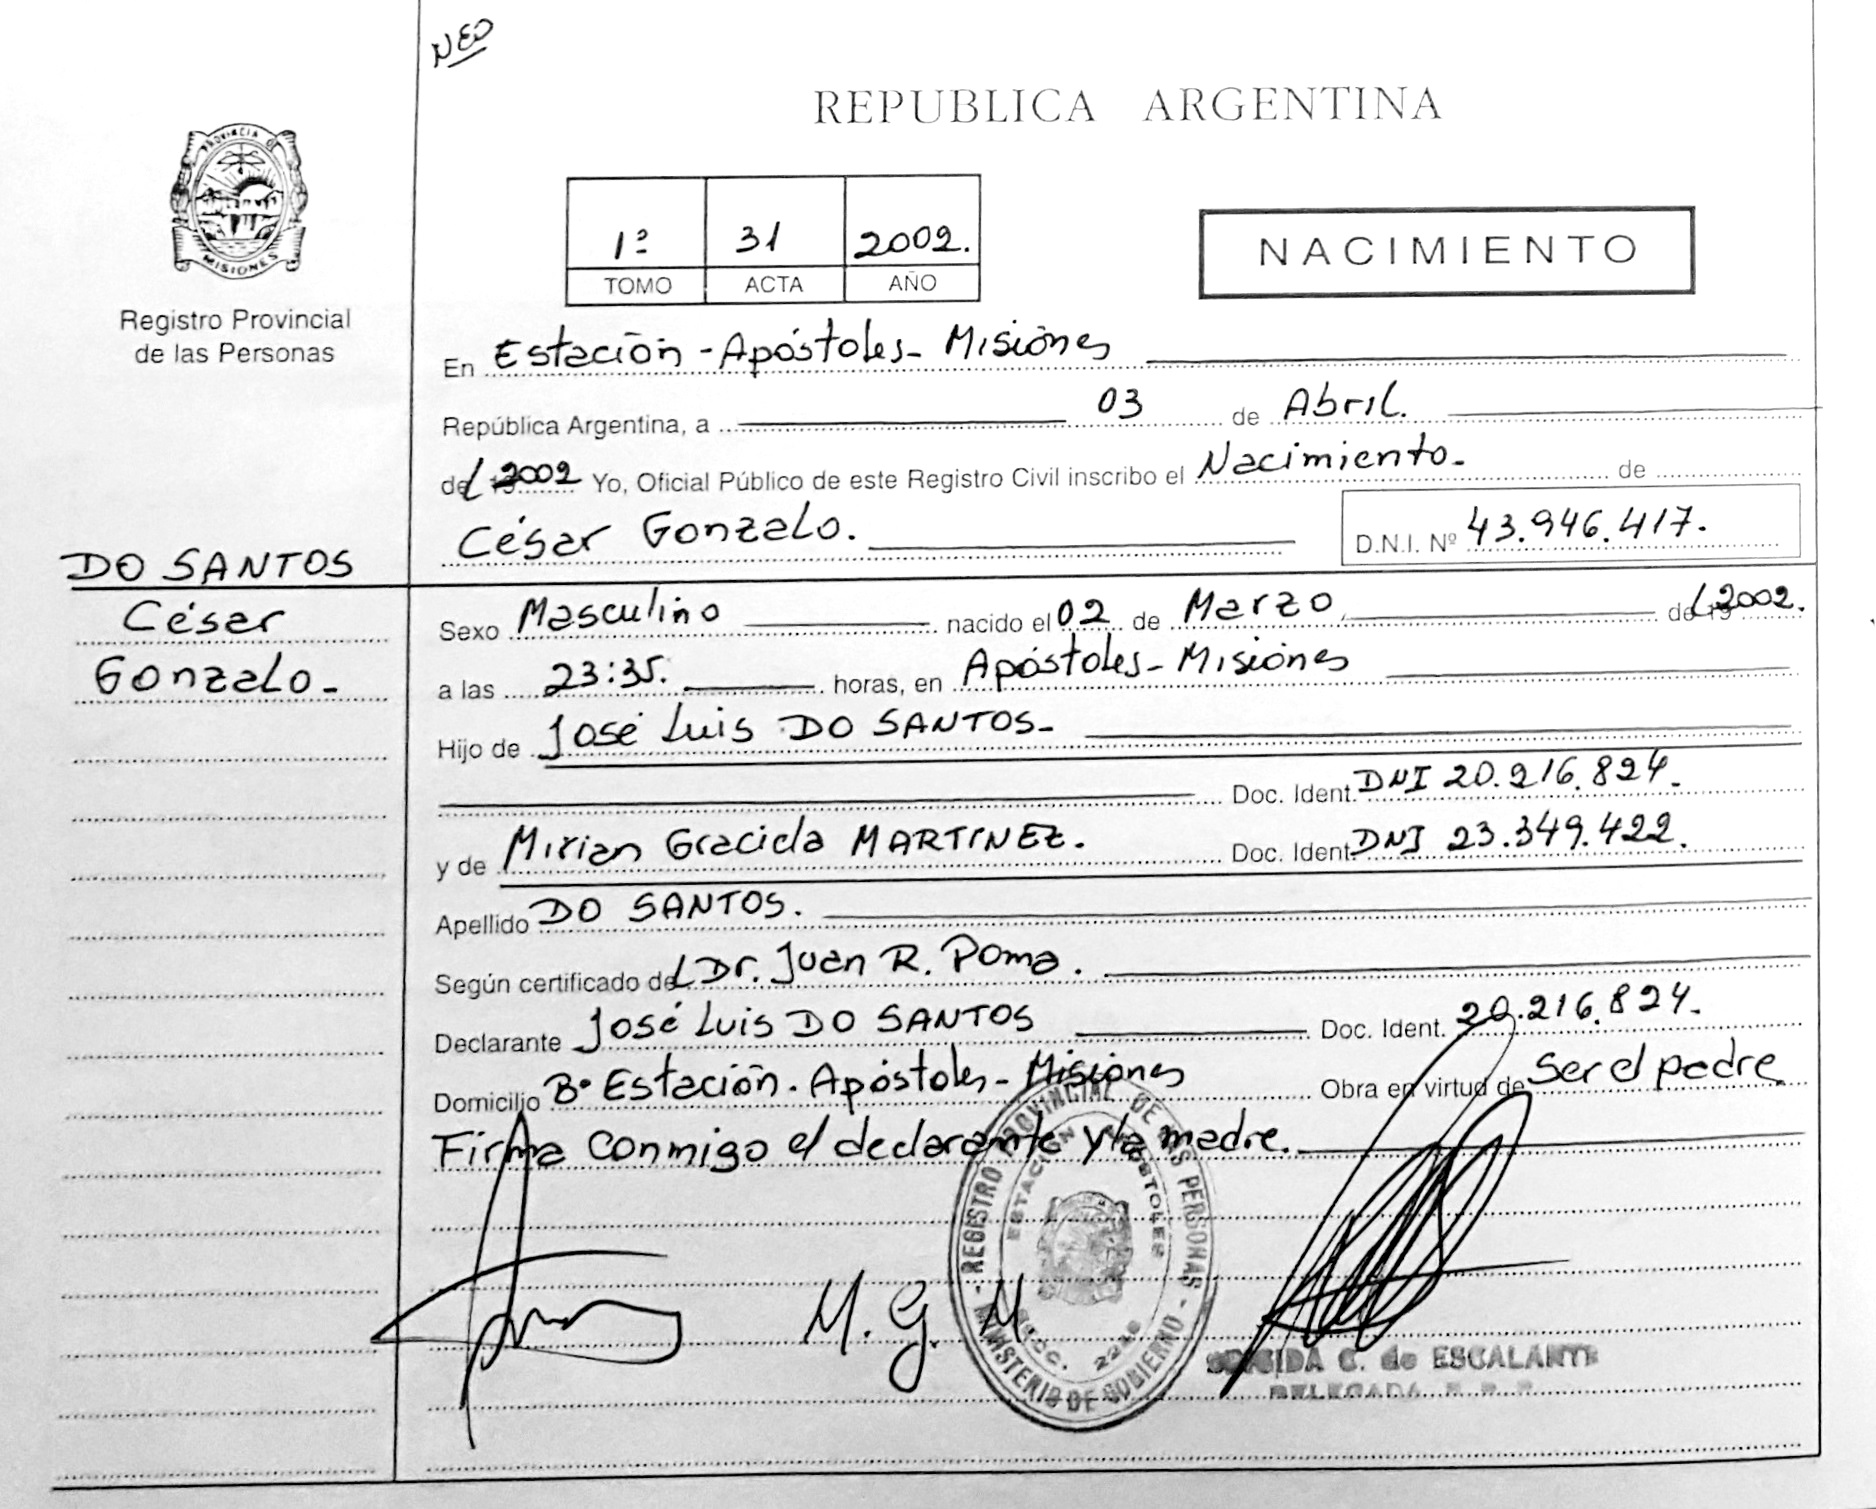 NEO
REPUBLICA ARGENTINA
PROVINCIA DE
MISIONES
Registro Provincial
de las Personas
1º 31 2002.
TOMO ACTA AÑO
NACIMIENTO
En Estación - Apóstoles - Misiones
República Argentina, a 03 de Abril.
del 2002 Yo, Oficial Público de este Registro Civil inscribo el Nacimiento. de
César Gonzalo. D.N.I. Nº 43.946.417.
DO SANTOS
César
Gonzalo.
Sexo Masculino nacido el 02 de Marzo del 2002.
a las 23:35. horas, en Apóstoles - Misiones
Hijo de José Luis DO SANTOS.
Doc. Ident. DNI 20.216.824.
y de Mirian Graciela MARTINEZ. Doc. Ident. DNI 23.349.422.
Apellido DO SANTOS.
Según certificado del Dr. Juan R. Poma.
Declarante José Luis DO SANTOS Doc. Ident. 20.216.824.
Domicilio Bº Estación. Apóstoles - Misiones Obra en virtud de Ser el padre
Firma conmigo el declarante y la madre.
REGISTRO PROVINCIAL DE LAS PERSONAS - MINISTERIO DE GOBIERNO -
ESTACIÓN APOSTOLES
M. G. M
C. de ESCALANTE
DELEGADA